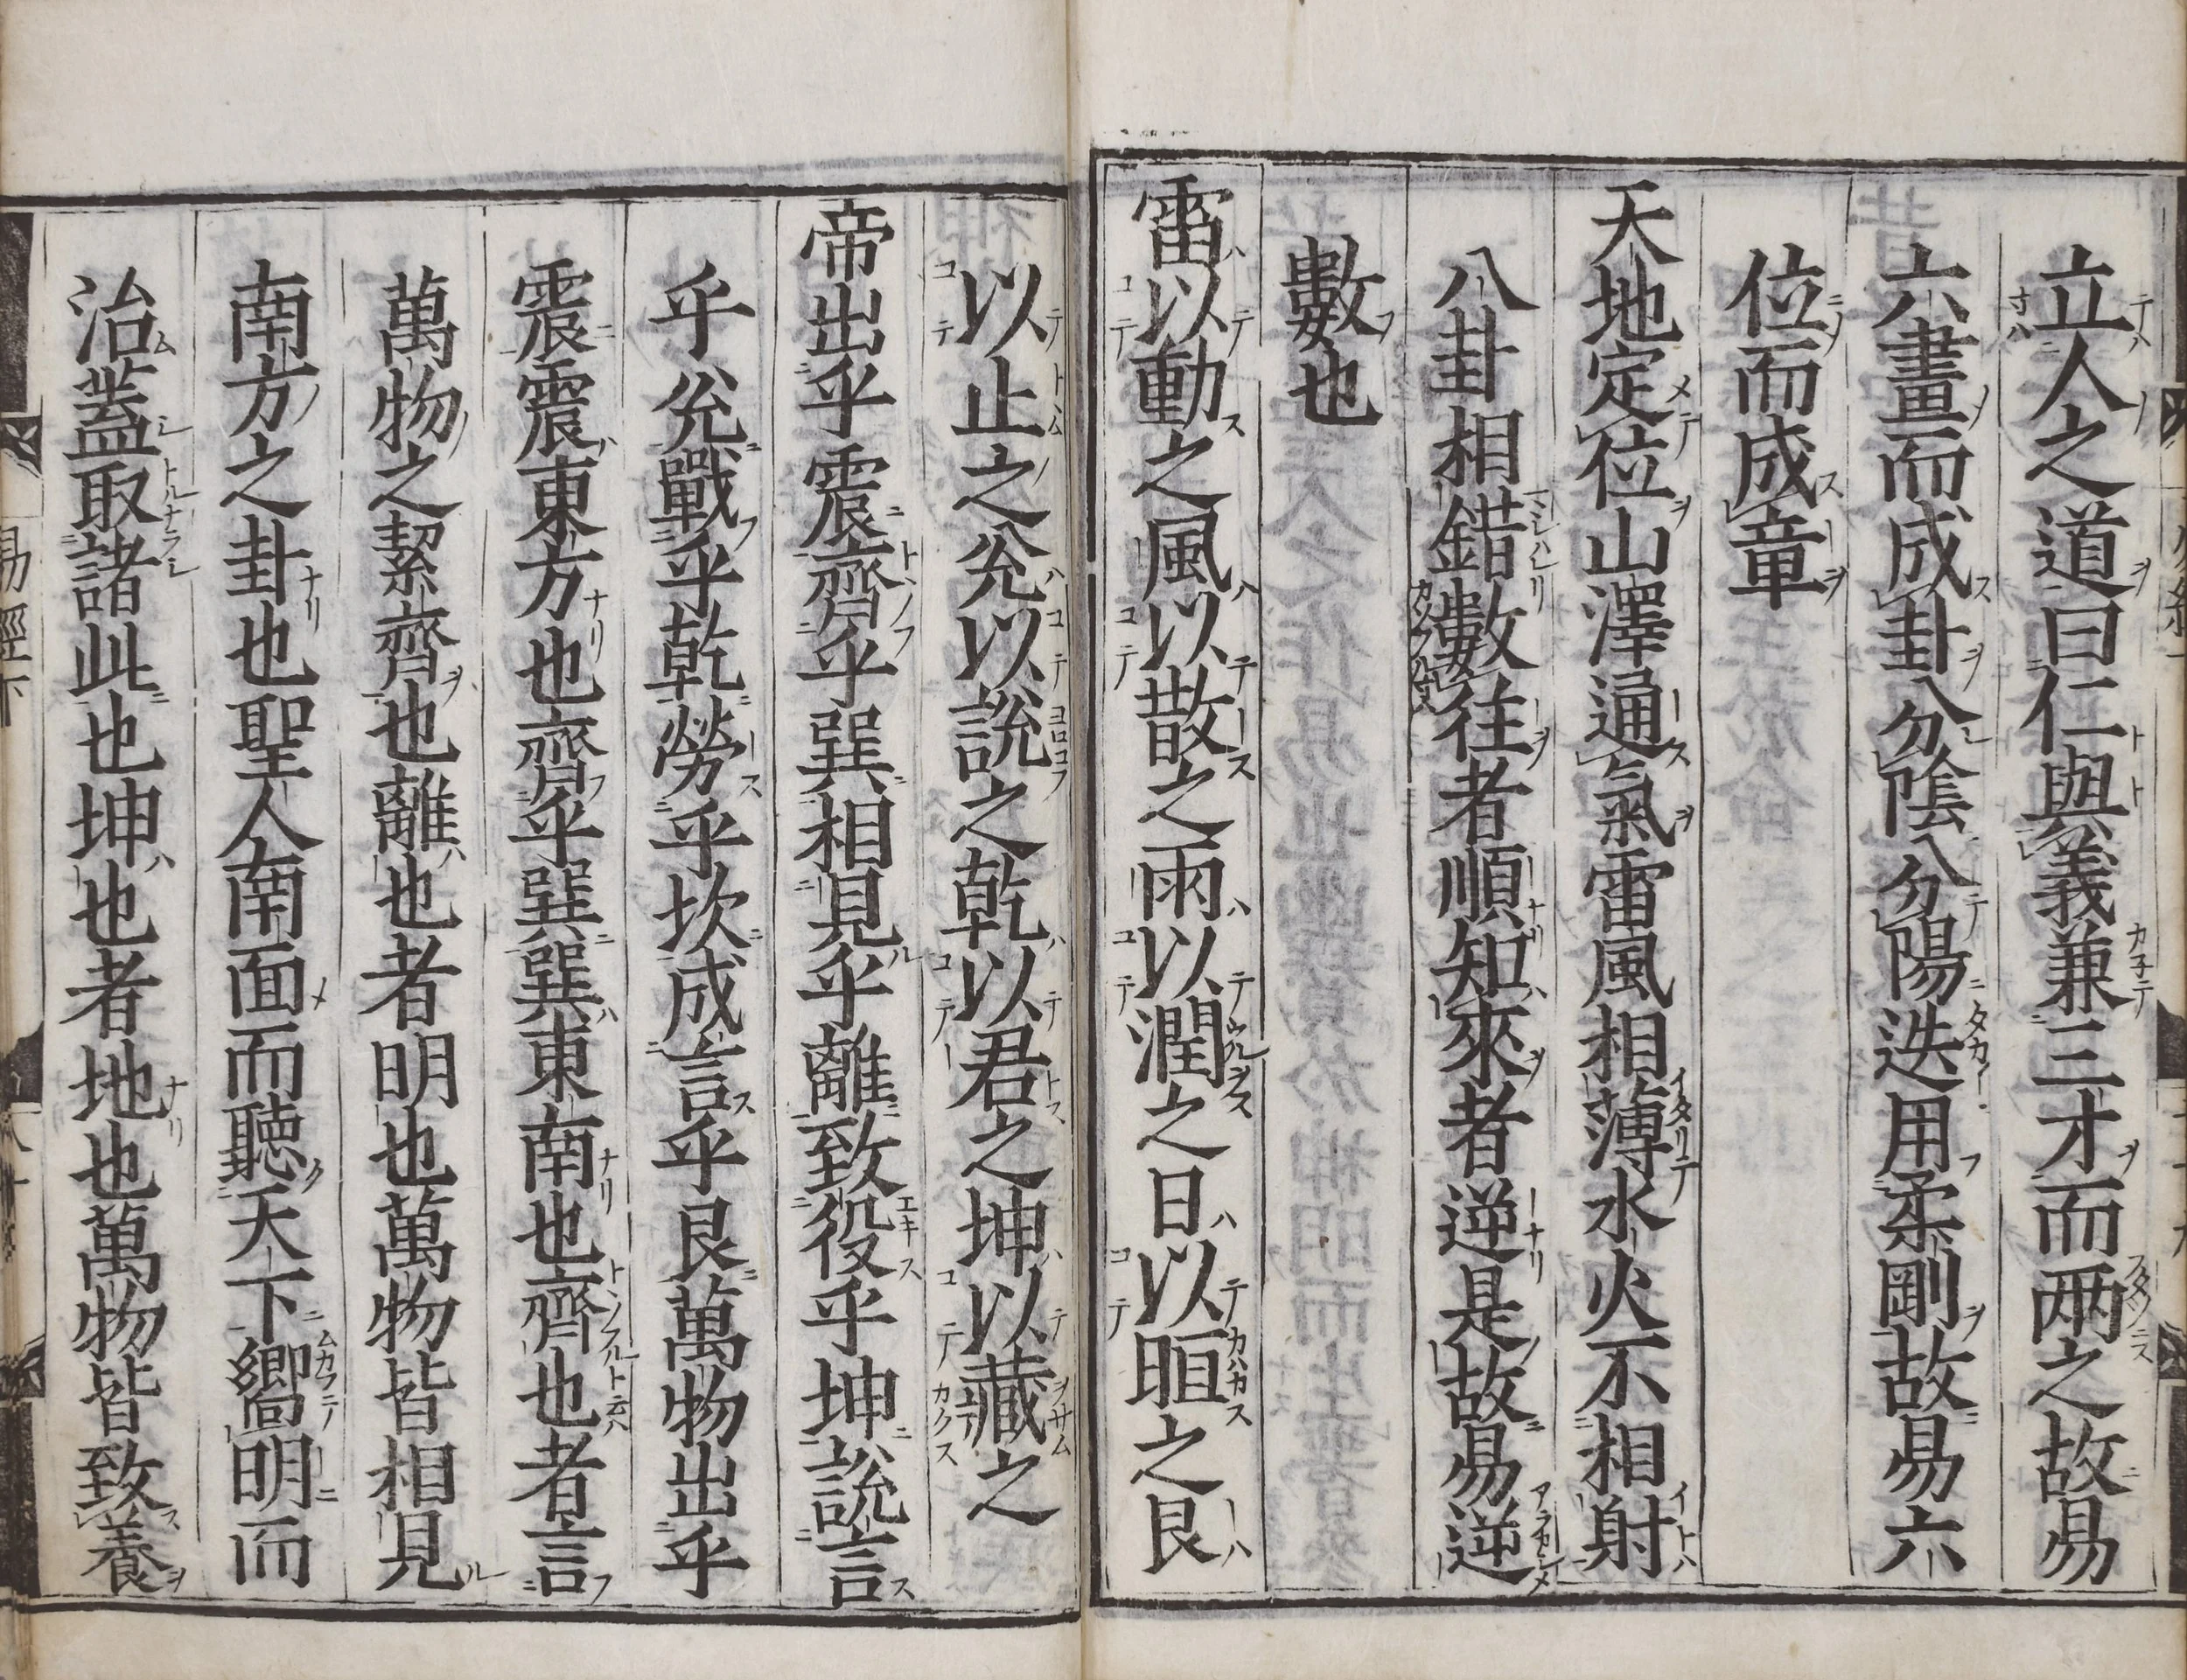 立人之道曰仁與義兼三才而兩之故易
六畫而成卦分陰分陽迭用柔剛故易六
位而成章
天地定位山澤通氣雷風相薄水火不相射
八卦相錯數往者順知來者逆是故易逆
數也
雷以動之風以散之雨以潤之日以晅之艮
以止之兊以說之乾以君之坤以藏之
帝出乎震齊乎巽相見乎離致役乎坤說言
乎兊戰乎乾勞乎坎成言乎艮萬物出乎
震震東方也齊乎巽巽東南也齊也者言
萬物之潔齊也離也者明也萬物皆相見
南方之卦也聖人南面而聽天下嚮明而
治蓋取諸此也坤也者地也萬物皆致養
易經下